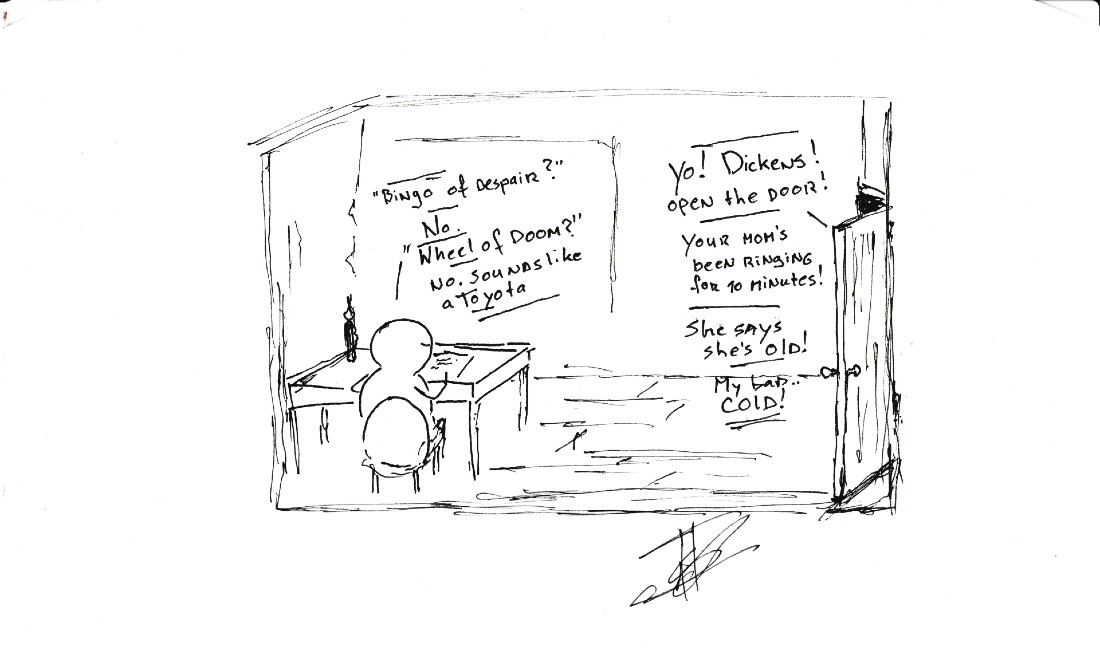 "Bingo of Despair?"
No.
"Wheel of DOOM?"
No. Sounds like
a Toyota
Yo! Dickens!
open the DOOR!
Your MOM's
been RINGING
for 10 MINUTES!
She says
she's Old!
My bad..
COLD!